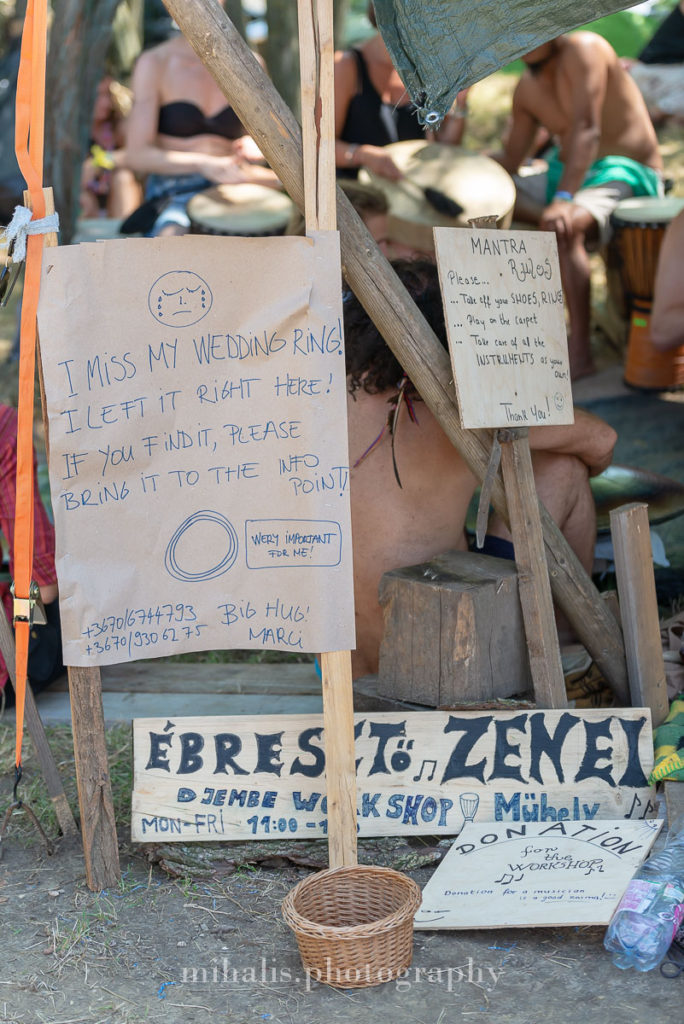 I MISS MY WEDDING RING!
I LEFT IT RIGHT HERE!
IF YOU FIND IT, PLEASE
BRING IT TO THE INFO
POINT!
WERY IMPORTANT
FOR ME!
+3670/6744793
+3670/9306275
BIG HUG!
MARCI
MANTRA
. RULES
Please...
... Take off your SHOES, RINGS
... Play on the carpet
... Take care of all the
INSTRUMENTS as your
own!
Thank You!
ÉBRESZTŐ ZENEI
DJEMBE WORKSHOP Műhely
MON-FRI 11:00 -
DONATION
for the
WORKSHOP
Donation for a musician
is a good karma!
mihalis.photography